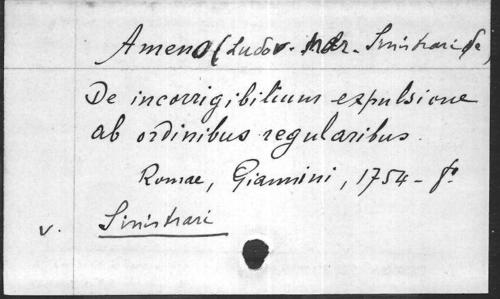 Ameno (Ludov. Mar. Sinistrari de)
De incorrigibilium expulsione
ab ordinibus regularibus.
Romae, Giannini, 1754 - fº
v. Sinistrari